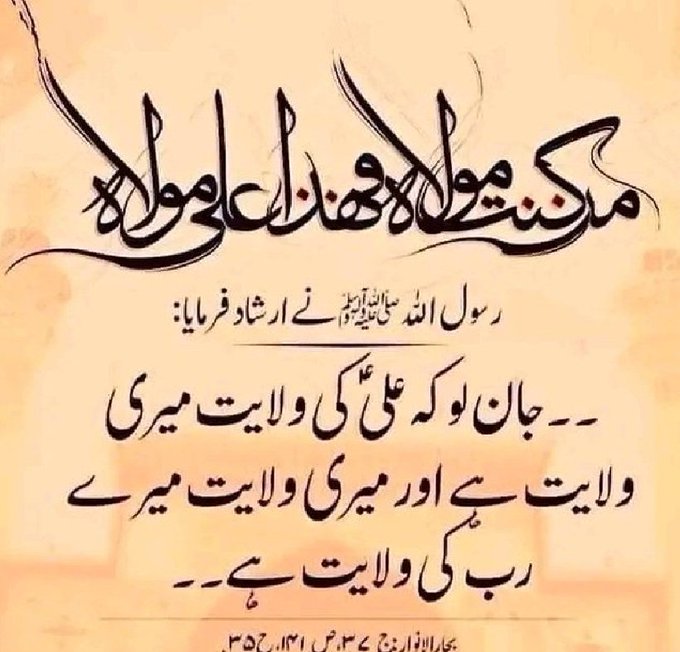 من كنت مولاه فهذا علی مولاه
رسول اللہ ﷺ نے ارشاد فرمایا:
۔۔ جان لو کہ علیؑ کی ولایت میری
ولایت ہے اور میری ولایت میرے
رب کی ولایت ہے۔۔
بحارالانوار، ج ۳۷، ص ۱۴۱، ح ۳۵۔